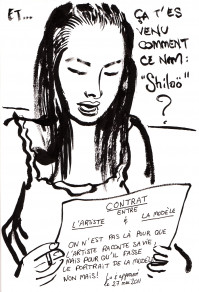 ET...
ÇA T'ES
VENU
COMMENT
CE NOM:
"Shiloö"
?
CONTRAT
ENTRE
L'ARTISTE & LA MODÈLE
ON N'EST PAS LÀ POUR QUE
L'ARTISTE RACONTE SA VIE,
MAIS POUR QU'IL FASSE
LE PORTRAIT DE LA MODÈLE
NON MAIS!
Lu & approuvé
le 27 mai 2011